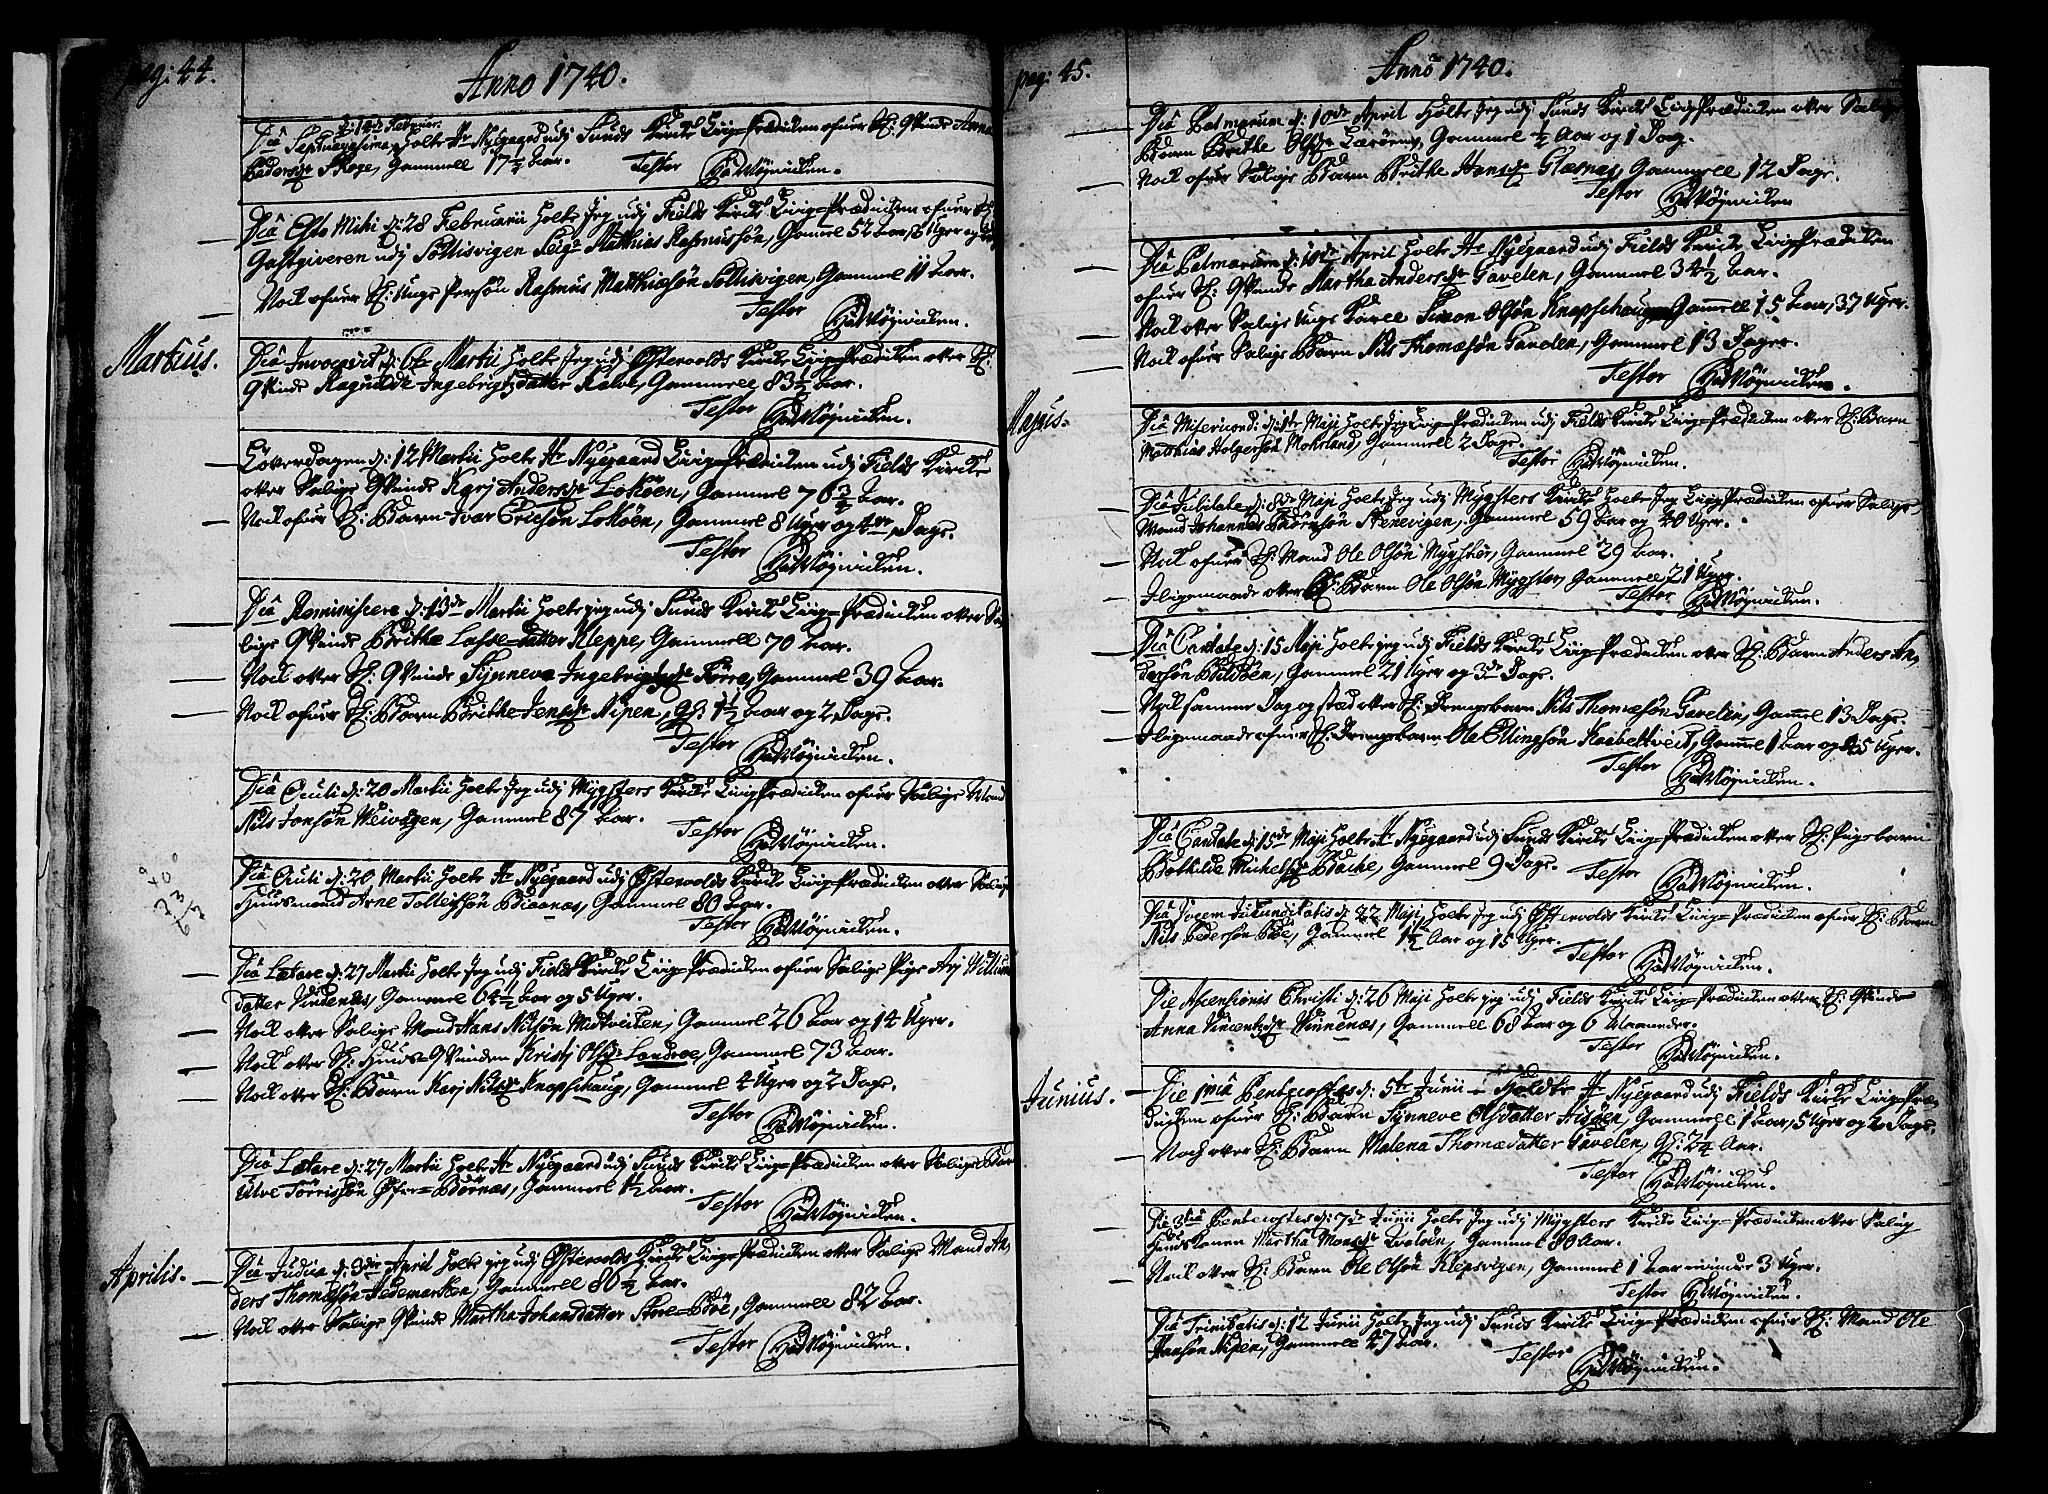 pag: 44.
Anno 1740.
d: 14de Februar.
Dià Septuagesima, holte Hr Nylegaard udj Sunds Kircke Liig-Prædicken ofuer Sl: Qvinde Anna
Peders dr Skoge, Gammell 17½ Aar. Testor HaMøywicken.
Dià Esto Mihi d: 28 Februarii holte Jeg udj Fields Kircke Liig-Prædicken ofuer
Gastgiveren udj Solltisvigen Seigr Matthias Rasmussøn, Gammel 52 Aar, Uger og
Nock ofuer Sl: Unge Persøn Rasmus Matthiesøn Solltisvigen, Gammel 11 Aar.
Testor HaMøywicken.
Martius.
Dià Invocavit d: 6te Martii holte Jeg udj Østervolds Kircke Liig-Prædicken over Sl:
Qvinde Ragnilde Ingebrigtz datter Kalve, Gammell 83½ Aar.
Testor HaMøywicken.
Løverdagen d: 12 Martii holte Hr Nylegaard Liig-Prædicken udj Fields Kircke
over Salige Qvinde Karj Anders dr Lokøen, Gammel 76¾ Aar.
Nock ofuer Sl: Barn Ivar Ericsøn Lokøen, Gammel 8 Uger og 4re Dage.
Testor HaMøywicken.
Dià Reminiscere d: 13de Martii holte jeg udj Sunds Kircke Liig-Prædicken over Sa-
lige Qvinde Brithe Lasse-datter Kleppe, Gammell 70 Aar.
Nock over Sl: Qvinde Synneva Ingebrigtz dr Torre, Gammel 39 Aar.
Nock ofuer Sl: Barn Brithe Jens dr Nipen, gl: 1½ Aar og 2 Dage.
Testor HaMøywicken.
Dià Oculi d: 20 Martii holte Jeg udj Mygsters Kircke Liig-Prædicken ofuer Salige Mand
Nils Jonsøn Weivogen, Gammel 87 Aar. Testor
HaMøywicken.
Dià Oculi d: 20 Martii holte Hr Nylegaard udj Østervolds Kircke Liig-Prædicken over Salige
Huusmand Arne Tolleifsøn Biørnæs, Gammel 80 Aar.
Testor HaMøywicken.
Dià Lætare d: 27 Martii holte Jeg udj Fields Kircke Liig-Prædicken ofuer Salige Pige Arj Willum
datter Vindenes, Gammel 64½ Aar og 5 Uger.
Nock over Salige Mand Hans Nilsøn Midtveiten, Gammel 26 Aar og 14 Uger.
Nock over Sl: Huus-Qvinden Kristj Ols dr Landroe, Gammel 73 Aar.
Nock over Sl: Barn Karj Nils dr Knapschaug, Gammel 4 Uger og 2 Dage.
Testor HaMøywicken.
Dià Lætare d: 27 Martii holte Hr Nylegaard udj Sunds Kircke Liig-Prædicken over Salige Barn
Ulve Torrissøn Øfre-Børnæs, Gammel 1½ Aar.
Testor HaMøywicken.
Aprilis.
Dià Judica d: 3die April holte jeg udj Østervolds Kircke Liig-Prædicken over Salige Mand An-
ders Thomæsøn Hedemarken, Gammell 80½ Aar.
Nock over Salige Qvinde Martha Johansdatter Store-Bøe, Gammell 82 Aar.
Testor HaMøywicken.
pag: 45.
Anno 1740.
Dià Palmarum d: 10de April holte Jeg udj Sunds Kircke Liig-Prædicken over Salige
Barn Brithe Ols dr Lerøen, Gammel ½ Aar og 1 Dag.
Nock ofuer Salige Barn Brithe Hans dr Glæsnæs, Gammell 12 Dage.
Testor HaMøywicken
Dià Palmarum d: 10de April holte Hr Nylegaard udj Fields Kircke Liig-Prædicken
ofuer Sl: Qvinde Martha Anders dr Gavelen, Gammel 34½ Aar.
Nock over Salige Unge Karel Simon Olsøn Knapschaug Gammell 15 Aar, 37 Uger.
Nock ofuer Salige Barn Nils Thomæsøn Gavelen, Gammel 13 Dager.
Testor HaMøywicken.
Majus.
Dià Misericord: d: 1te Maji holte Jeg Liig-Prædicken udj Fields Kircke Liig-Prædicken over Sl: Barn
Matthias Holgersøn Mohrland, Gammell 2 Dage.
Testor HaMøywicken.
Dià Jubilate d: 8de Maji holte Jeg udj Mygsters Kircke holte Jeg Liig-Prædicken ofuer Salige
Mand Johannes Biørnsøn Stenevigen, Gammel 59 Aar og 40 Uger.
Nock ofuer Sl: Mand Ole Olsøn Mygster, Gammel 29 Aar.
Iligemaade over Sl: Barn Ole Olsøn Mygster, Gammell 21 Uger.
Testor HaMøywicken.
Dià Cantate d: 15 Maji holte jeg udj Fields Kircke Liig-Prædicken over Sl: Barn Anders An-
dersøn Bildøen, Gammel 21 Uger og 3de Dage.
Nock samme Dag og stæd over Sl: Drengebarn Nils Thomæsøn Gavelen, Gammel 13 Dage.
Iligemaade ofuer Sl: Drengebarn Ole Ellingsøn Kaebeltveit, Gammel 1 Aar og 45 Uger.
Testor HaMøywicken.
Dià Cantate d: 15de Maji holte Hr Nylegaard udj Sunds Kircke Liig-Prædicken over Sl: Pigebarn
Bothilde Michels dr Backe, Gammell 9 Dage.
Testor HaMøywicken.
Dià Vocem Jucunditatis d: 22 Maji holte Jeg udj Østervolds Kircke Liig-Prædicken ofuer Sl: Barn
Nils Pedersøn Bøe, Gammel 1½ Aar og 15 Uger.
Testor HaMøywicken.
Die Ascensionis Christi d: 26 Maji holte jeg udj Fields Kircke Liig-Prædicken over Sl: Qvinde
Anna Vincentz dr Vinnenæs, Gammell 68 Aar og 6 Maaneder.
Testor HaMøywicken.
Junius.
Die 1mà Pentecostes d: 5te Junii Holdte Hr Nylegaard udj Fields Kircke Liig-Præ-
dicken ofuer Sl: Barn Synneve Olsdatter Alsøen, Gammell 1 Aar, 5 Uger og 2 Dage.
Noch over Sl: Barn Malena Thomædatter Gavelen, gl: 2¼ Aar.
Testor HaMøywicken.
Die 3tià Pentecostes d: 7de Junii holte Jeg udj Mygsters Kircke Liig-Prædicken over Salig
Huuskonen Martha Mons dr Qvaløen, Gammel 80 Aar.
Nock over Sl: Barn Ole Olsøn Klepsvigen, Gammel 1 Aar minus 3 Uger.
Testor HaMøywicken.
Dià Trinitatis d: 12 Junii holte Jeg udj Sunds Kircke Liig-Prædicken ofuer Sl: Mand Ole
Hansøn Nipen, Gammell 47 Aar.
Testor HaMøywicken.